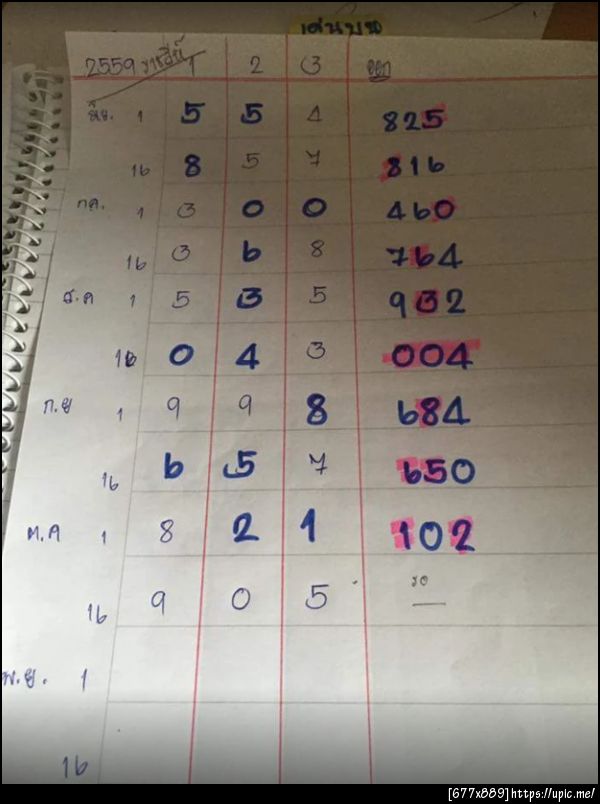 เด่นบน
2559 ราศีย์ 1 2 3 ออก
มิ.ย. 1 5 5 4 825
16 8 5 7 816
ก.ค. 1 3 0 0 460
16 3 6 8 764
ส.ค 1 5 3 5 932
16 0 4 3 004
ก.ย 1 9 9 8 684
16 6 5 7 650
ต.ค 1 8 2 1 102
16 9 0 5 รอ
พ.ย. 1
16
[677x889]https://upic.me/